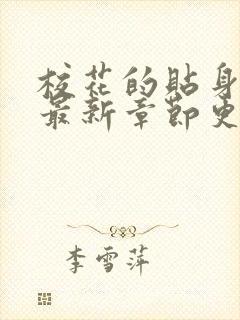 校花的贴身
最新章节更
李雪萍